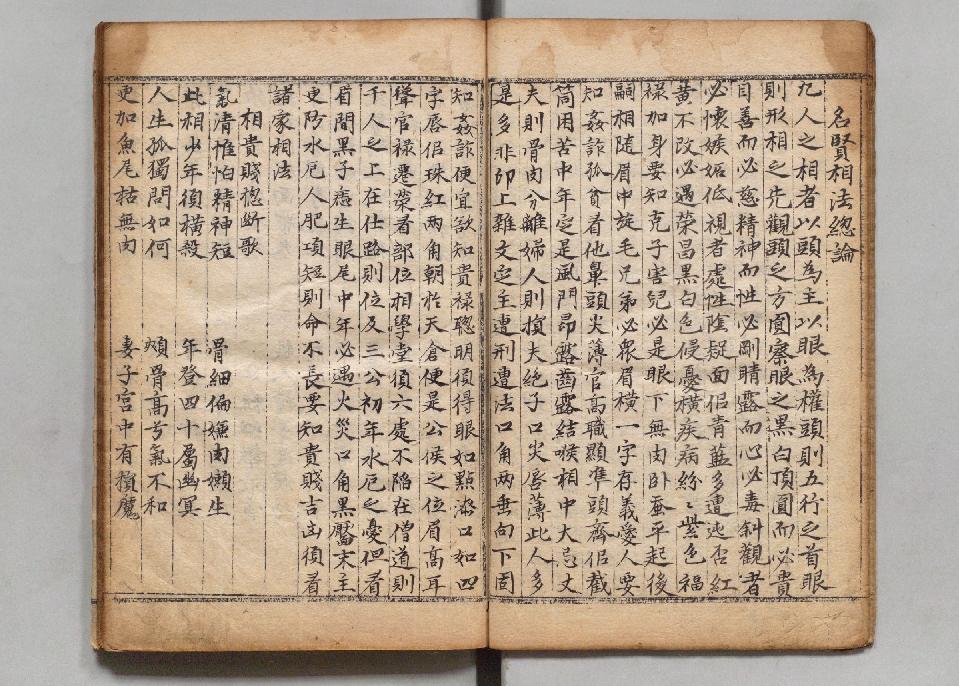 名賢相法總論
凡人之相者以頭為主以眼為權頭則五行之首眼
則形相之先觀頭之方圓察眼之黑白頂圓而必貴
目善而必慈精神而性必剛睛露而心必毒斜觀者
必懷嫉妬低視者處性陰疑面但青藍多遭迍否紅
黃不改必遇榮昌黑白色侵憂橫疾病紛々紫色福
祿加身要知克子害兒必是眼下無肉卧蚕平起後
嗣相隨眉中旋毛兄弟必衆眉橫一字存義愛人要
知姦詐孤貧看他鼻頭尖薄官高職顯準頭齊但截
筒困苦中年定是風門昻露齒露結喉相中大忌丈
夫則骨肉分離婦人則損夫絶子口尖唇薄此人多
是多非卯上雜文定主遭刑遭法口角兩垂向下固
知姦詐便宜欲知貴祿聦明須得眼如點漆口如四
字唇但珠紅兩角朝於天倉便是公侯之位眉高耳
聳官祿遷榮看部位相學堂須六處不陷在僧道則
千人之上在仕路則位及三公初年水厄之憂但看
眉間黑子痣生眼尾中年必遇火災口角黑黶末主
更防水厄人肥項短則命不長要知貴賤吉凶須看
諸家相法
相貴賤揔断歌
氣清惟怕精神短 骨細偏嫌肉嬾生
此相少年須橫殺 年登四十屬幽冥
人生孤獨問如何 頰骨高兮氣不和
更加魚尾枯無肉 妻子宮中有擯魔